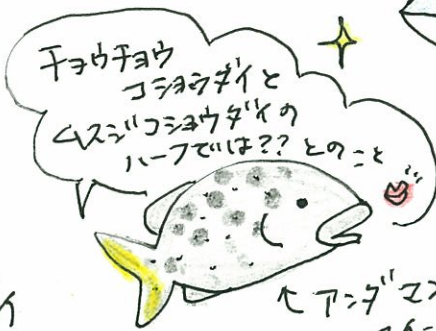 チョウチョウ
コショウダイと
ムスジコショウダイの
ハーフでは?? とのこと
←アンダマン
イ